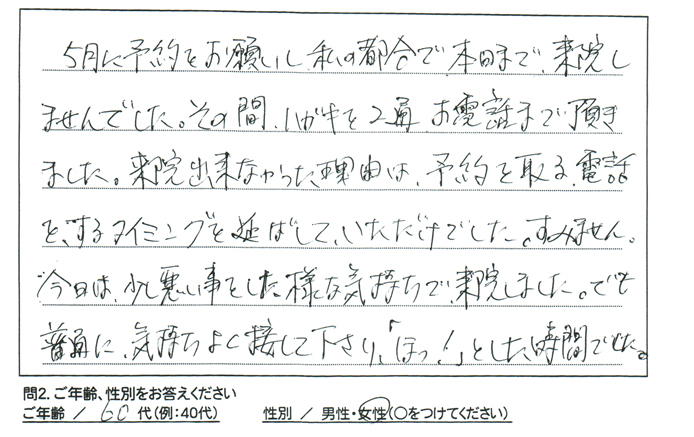 5月に予約をお願いし、私の都合で、本日まで、来院し
ませんでした。その間、ハガキを2通、お電話まで頂き
ました。来院出来なかった理由は、予約を取る、電話
を、するタイミングを延ばして、いただけでした。すみません。
今日は、少し悪い事をした様な気持ちで、来院しました。でも
普通に、気持ちよく接して下さり、「ほっ!」とした、時間でした。
問2. ご年齢、性別をお答えください
ご年齢 / 60 代(例:40代) 性別 / 男性・女性(○をつけてください)